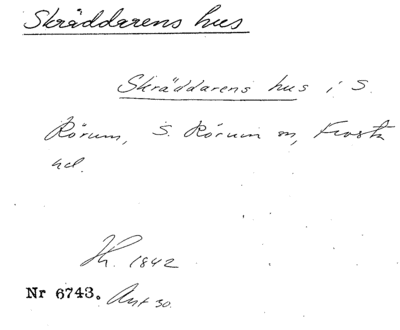 Skräddarens hus
Skräddarens hus i S.
Rörum, S. Rörum sn, Frosta
hd.
1842
Nr 6743. Ant 30.